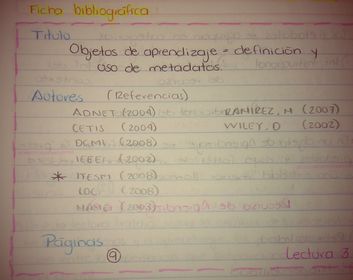 Ficha bibliográfica:
Titulo
Objetos de aprendizaje = definición y
uso de metadatos.
Autores (Referencias)
ADNET (2004) RAMIREZ, M (2007)
CETIS (2004) WILEY, D (2002)
DGMI (2008)
IEEE (2002)
* ITESM (2008)
LOC (2008)
(2003)
Páginas
9
Lectura 3